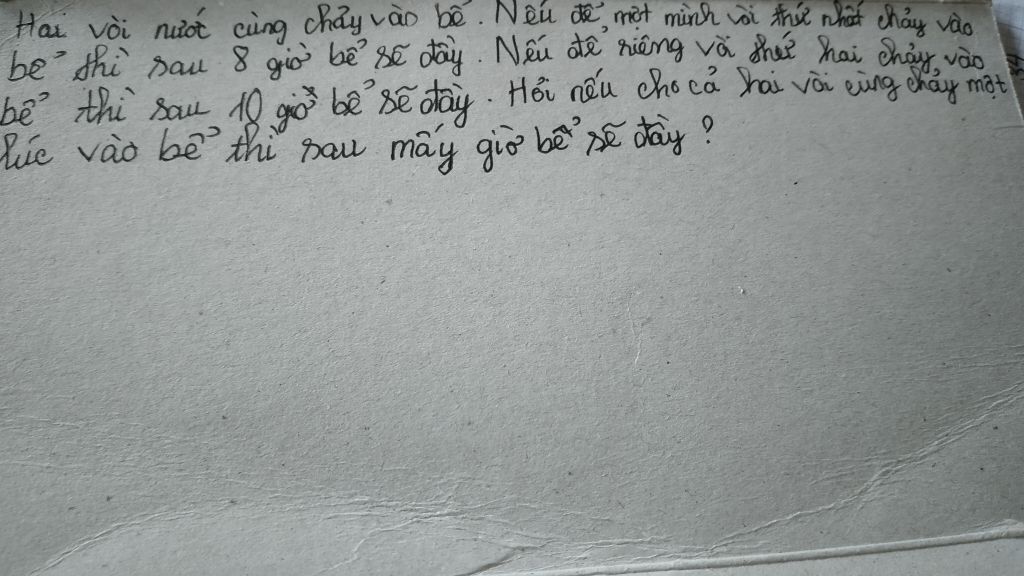 Hai vòi nước cùng chảy vào bể. Nếu để một mình vòi thứ nhất chảy vào
bể thì sau 8 giờ bể sẽ đầy. Nếu để riêng vòi thứ hai chảy vào
bể thì sau 10 giờ bể sẽ đầy. Hỏi nếu cho cả hai vòi cùng chảy một
lúc vào bể thì sau mấy giờ bể sẽ đầy?